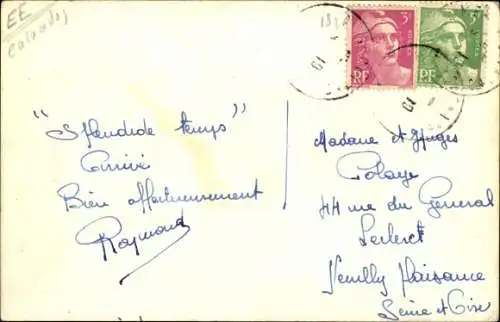 EE
Calvados
"Splendide temps"
Arrivé
Bien affectueusement
Raymond
3
3
RF
RF
Madame et
44 rue du General
Leclerc
Neuilly Plaisance
Seine et Oise